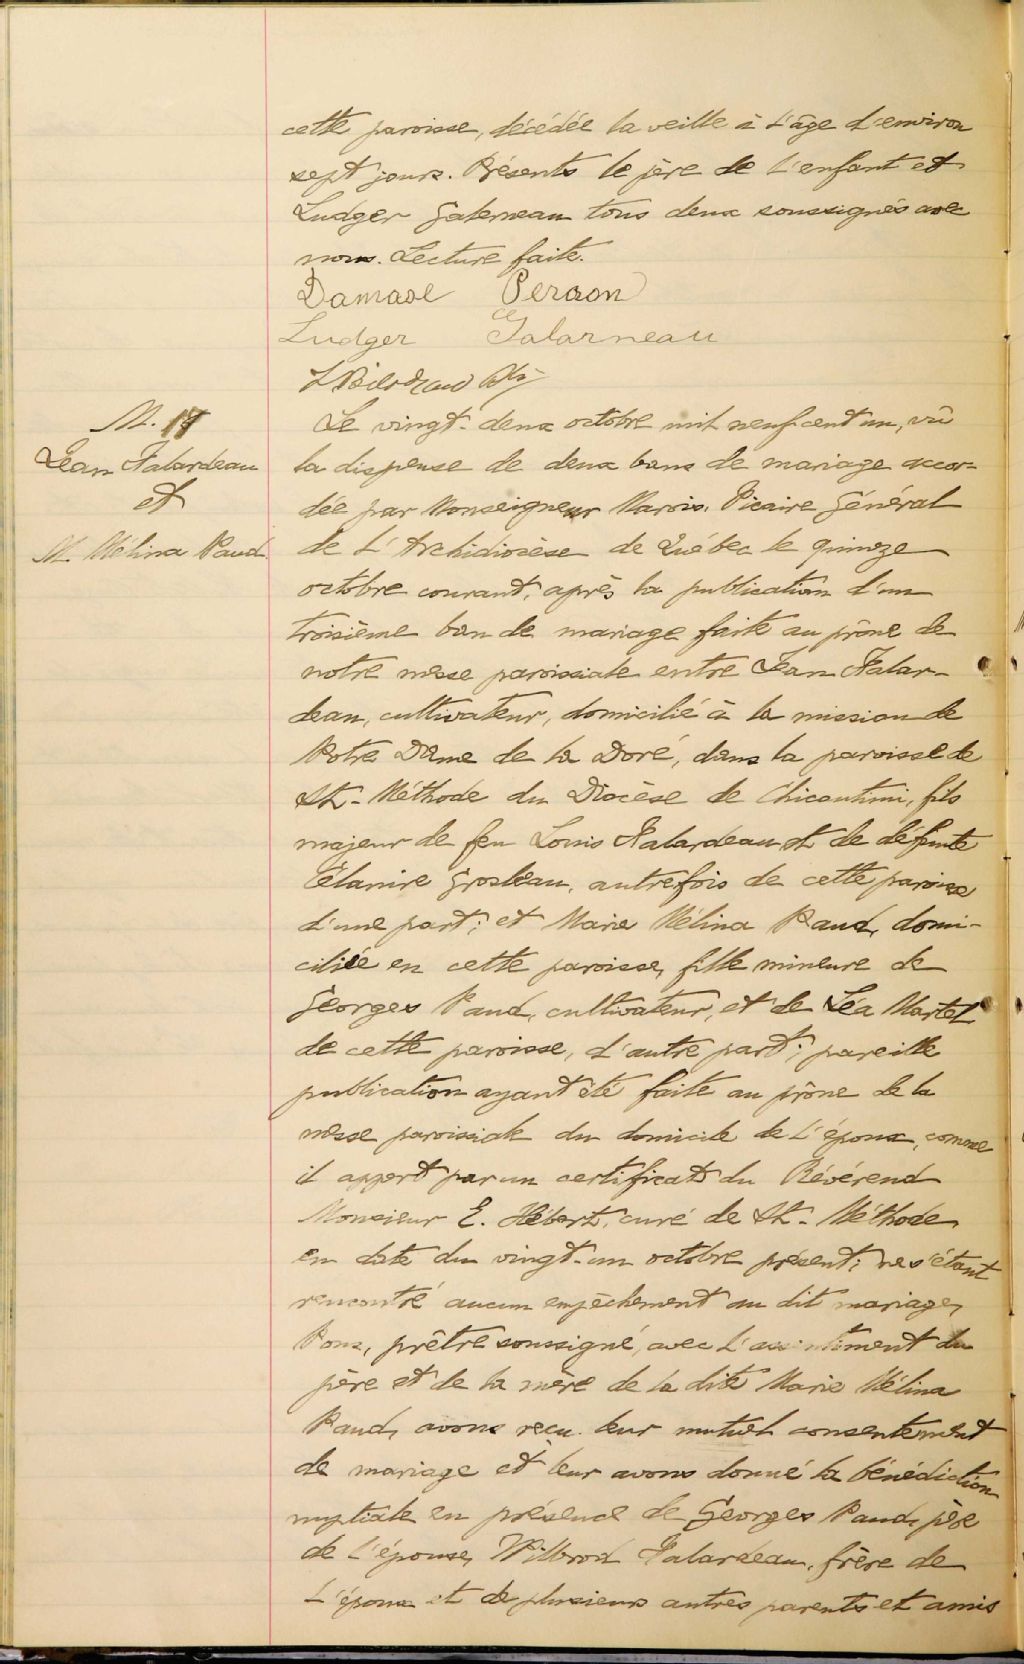 cette paroisse, décédée la veille à l'âge d'environ
sept jours. Présents le père de l'enfant et
Ludger Galerneau tous deux soussignés avec
nous. Lecture faite.
Damase Perron
Ludger Galarneau
M. 17
Jean Falardeau
et
M. Mélina Paud
Le vingt-deux octobre mil neuf cent un, vû
la dispense de deux bans de mariage accor-
dée par Monseigneur Marois, Vicaire Général
de l'Archidiocèse de Québec le quinze
octobre courant, après la publication d'un
troisième ban de mariage faite au prône de
notre messe paroissiale entre Jean Falar-
deau, cultivateur, domicilié à la mission de
Notre Dame de la Doré, dans la paroisse de
St-Méthode du Diocèse de Chicoutimi, fils
majeur de feu Louis Falardeau et de défunte
Célanire Grosleau, autrefois de cette paroisse
d'une part; et Marie Mélina Paud, domi-
ciliée en cette paroisse, fille mineure de
Georges Paud, cultivateur, et de Léa Martel
de cette paroisse, d'autre part; pareille
publication ayant été faite au prône de la
messe paroissiale du domicile de l'époux, comme
il appert par un certificat du Révérend
Monsieur E. Hébert, curé de St-Méthode
en date du vingt-un octobre présent; ne s'étant
rencontré aucun empêchement au dit mariage,
Nous, prêtre soussigné, avec l'assentiment du
père et de la mère de la dite Marie Mélina
Paud, avons reçu leur mutuel consentement
de mariage et leur avons donné la bénédiction
nuptiale en présence de Georges Paud, père
de l'épouse, Wilbrod Falardeau, frère de
l'époux et de plusieurs autres parents et amis